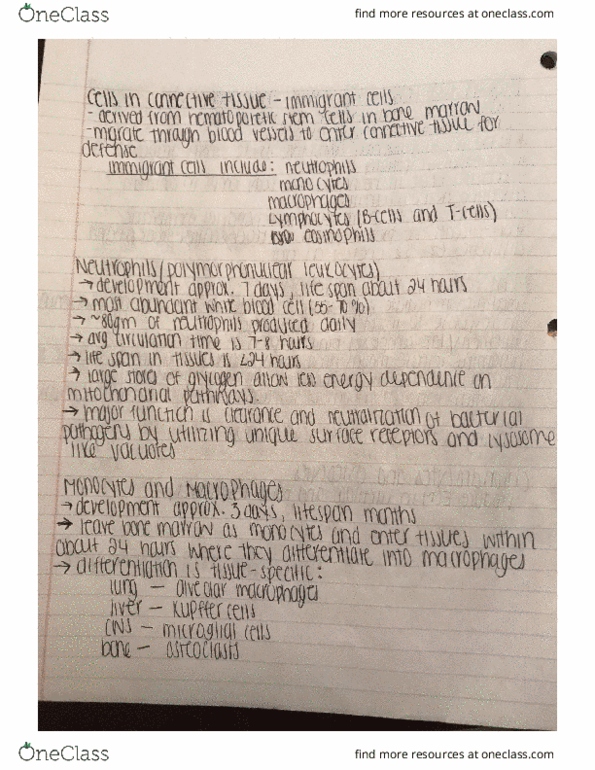 OneClass
find more resources at oneclass.com
Cells in connective tissue - immigrant cells
- derived from hematopoietic stem cells in bone marrow
- migrate through blood vessels to enter connective tissue for
defense
immigrant cells include: neutrophils
monocytes
macrophages
Lymphocytes (B-cells and T-cells)
eosinophils
Neutrophils (polymorphonuclear leukocytes)
→ development approx. 7 days, life span about 24 hours
→ most abundant white blood cell (55-70%)
→ ~80gm of neutrophils produced daily
→ avg circulation time is 7-8 hours
→ life span in tissues is <24 hours
→ large stores of glycogen allow less energy dependence on
mitochondrial pathways.
→ major function is clearance and neutralization of bacterial
pathogens by utilizing unique surface receptors and lysosome
like vacuoles
Monocytes and Macrophages
→ development approx. 3 days, lifespan months
→ leave bone marrow as monocytes and enter tissues within
about 24 hours where they differentiate into macrophages
→ differentiation is tissue-specific:
lung — alveolar macrophages
liver — Kupffer cells
CNS — microglial cells
bone — osteoclasts
OneClass
find more resources at oneclass.com